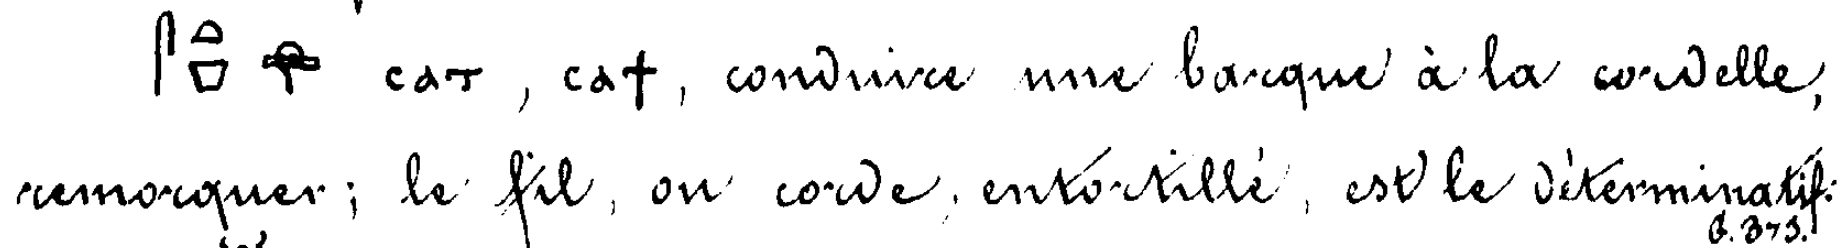 𓋴𓏏𓎼𓍱 ⲥⲁⲧ, ⲥⲁϯ, conduire une barque à la cordelle,
remorquer; le fil, ou corde, entortillé, est le déterminatif.